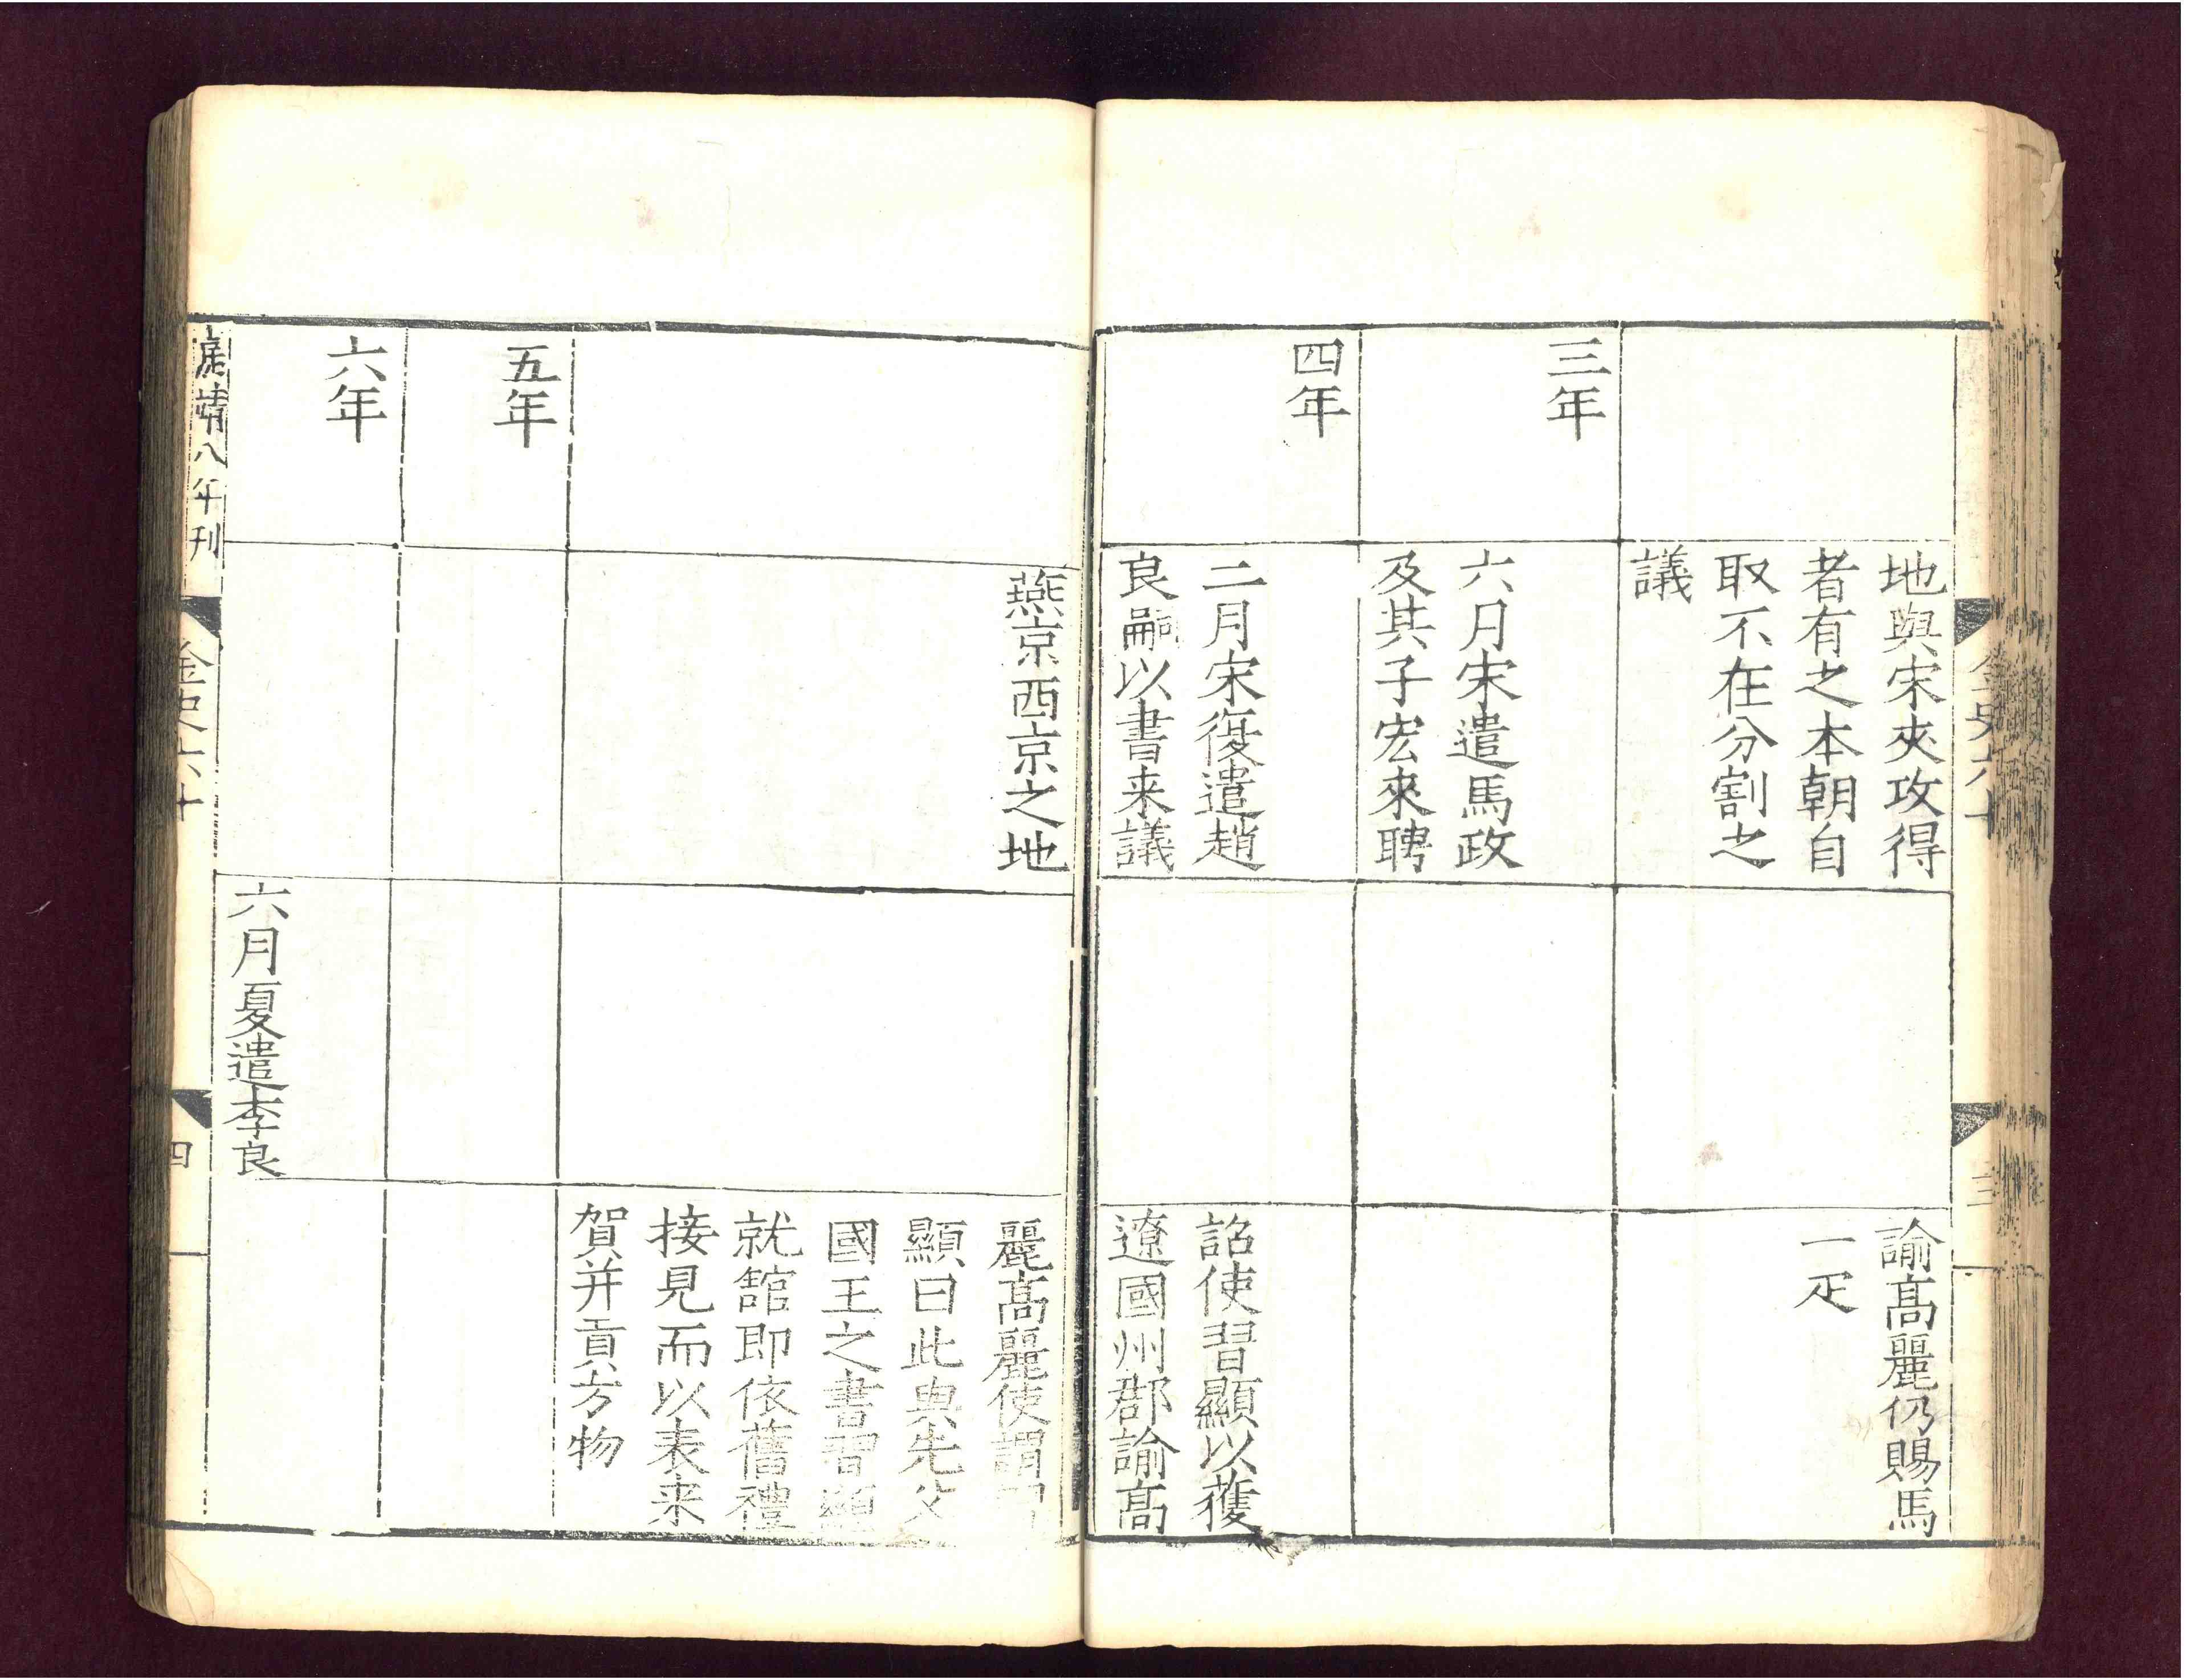 地與宋夾攻得
者有之本朝自
取不在分割之
議
諭髙麗仍賜馬
一疋
三年
六月宋遣馬政
及其子宏來聘
四年
二月宋復遣趙
良嗣以書来議
詔使習顯以獲
遼國州郡諭髙
金史六十
三
燕京西京之地
麗髙麗使謂習
顯曰此與先父
國王之書習顯
就舘即依舊禮
接見而以表来
賀并貢方物
五年
六年
六月夏遣李良
嘉靖八年刊
金史六十
四